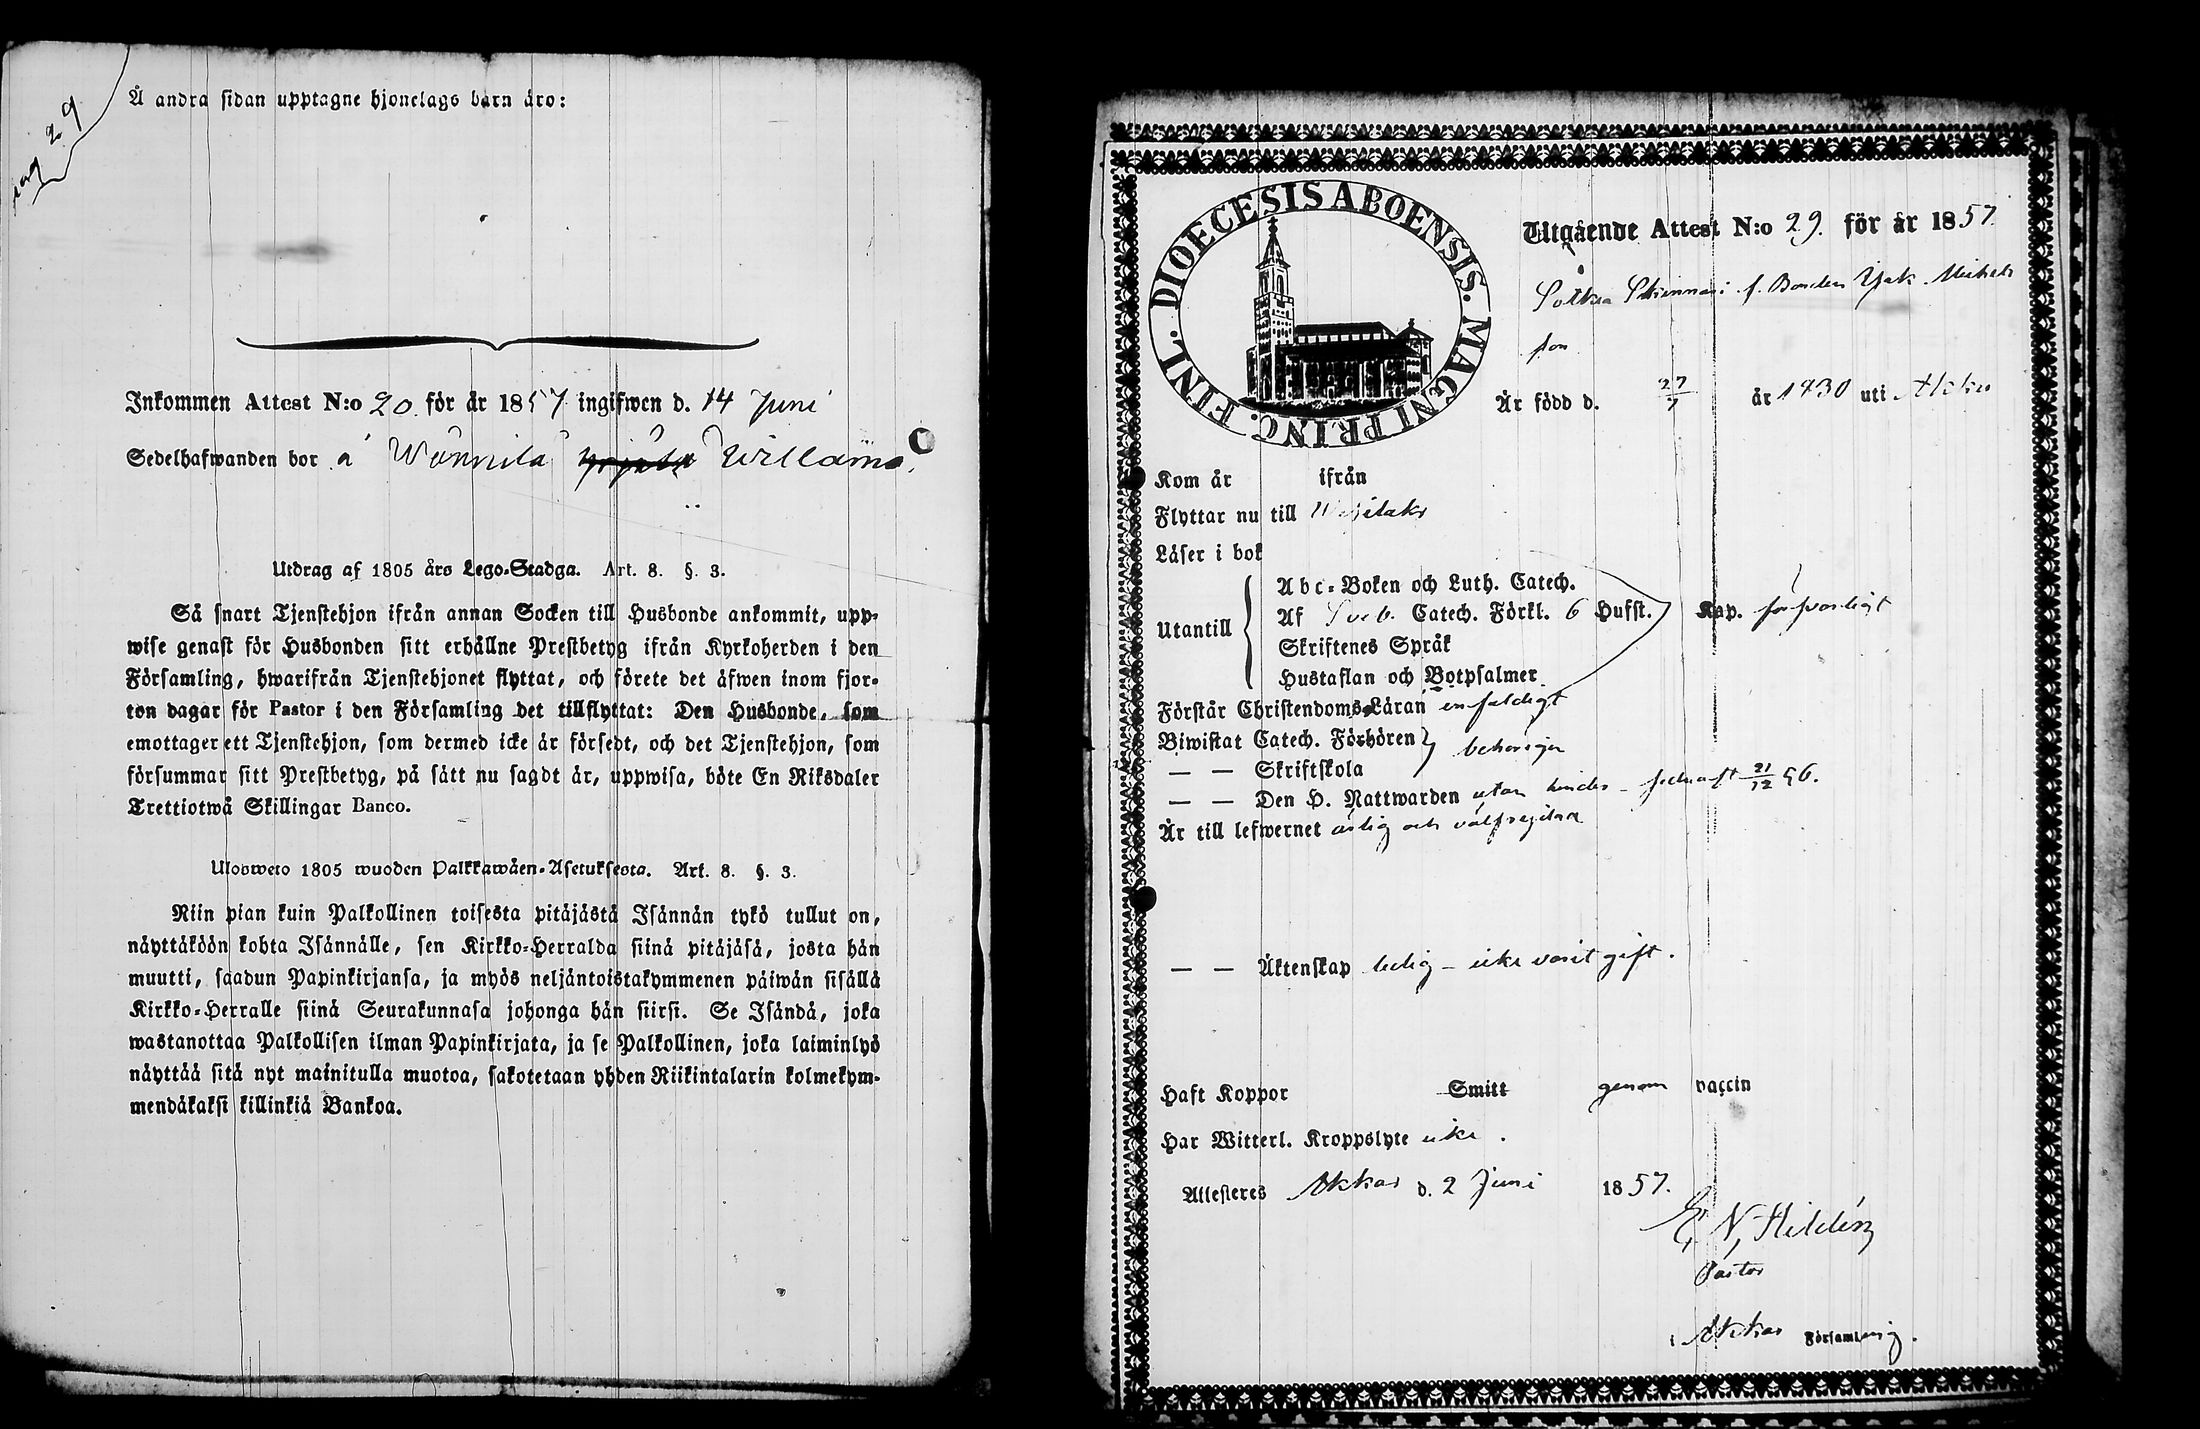 pag 29
Å andra sidan upptagne hjonelags barn äro:
Inkommen Attest N:o 20 för år 1857 ingifwen d. 14 Juni
Sedelhafwanden bor å Wännilä Willamo.
Utdrag af 1805 års Lego-Stadga. Art. 8. §. 3.
Så snart Tjenstehjon ifrån annan Socken till Husbonde ankommit, upp-
wise genast för Husbonden sitt erhållne Prestbetyg ifrån Kyrkoherden i den
Församling, hwarifrån Tjenstehjonet flyttat, och förete det äfwen inom fjor-
ton dagar för Pastor i den Församling det tillflyttat: Den Husbonde, som
emottager ett Tjenstehjon, som dermed icke är försedt, och det Tjenstehjon, som
försummar sitt Prestbetyg, på sätt nu sagdt är, uppwisa, böte En Riksdaler
Trettiotwå Skillingar Banco.
Ulosweto 1805 wuoden Palkkawäen-Asetuksesta. Art. 8. §. 3.
Niin pian kuin Palkollinen toisesta pitäjästä Isännän tykö tullut on,
näyttäköön kohta Isännälle, sen Kirkko-Herralda siinä pitäjäsä, josta hän
muutti, saadun Papinkirjansa, ja myös neljäntoistakymmenen päiwän sisällä
Kirkko-Herralle siinä Seurakunnasa johonga hän siirsi. Se Isändä, joka
wastanottaa Palkollisen ilman Papinkirjata, ja se Palkollinen, joka laiminlyö
näyttää sitä nyt mainitulla muotoa, sakotetaan yhden Riikintalarin kolmekym-
mendäkaksi killinkiä Bankoa.
DIOECESIS ABOENSIS. MAGNI PRINC. FINL.
Utgående Attest N:o 29. för år 1857.
f. Bonden Isak Michels
son
Är född d. 27/7 år 1830 uti Akkas
Kom år ifrån
Flyttar nu till Wesilaks
Läser i bok
Utantill
Abc-Boken och Luth. Catech.
Af Sveb. Catech. Förkl. 6 Hufst. Kap. försvarligt
Skriftenes Språk
Hustaflan och Botpsalmer
Förstår Christendoms-Läran enfaldigt
Biwistat Catech. Förhören behörigen
— — Skriftskola
— — Den H. Nattwarden utan hinder - sednast 21/12 56.
Är till lefwernet ärlig och välfrejdad
— — Äktenskap ledig - icke varit gift.
Haft Koppor Smitt genom vaccin
Har Witterl. Kroppslyte icke.
Attesteres Akkas d. 2 Juni 1857.
E. N. Hildén
Pastor
i Akkas Församling.